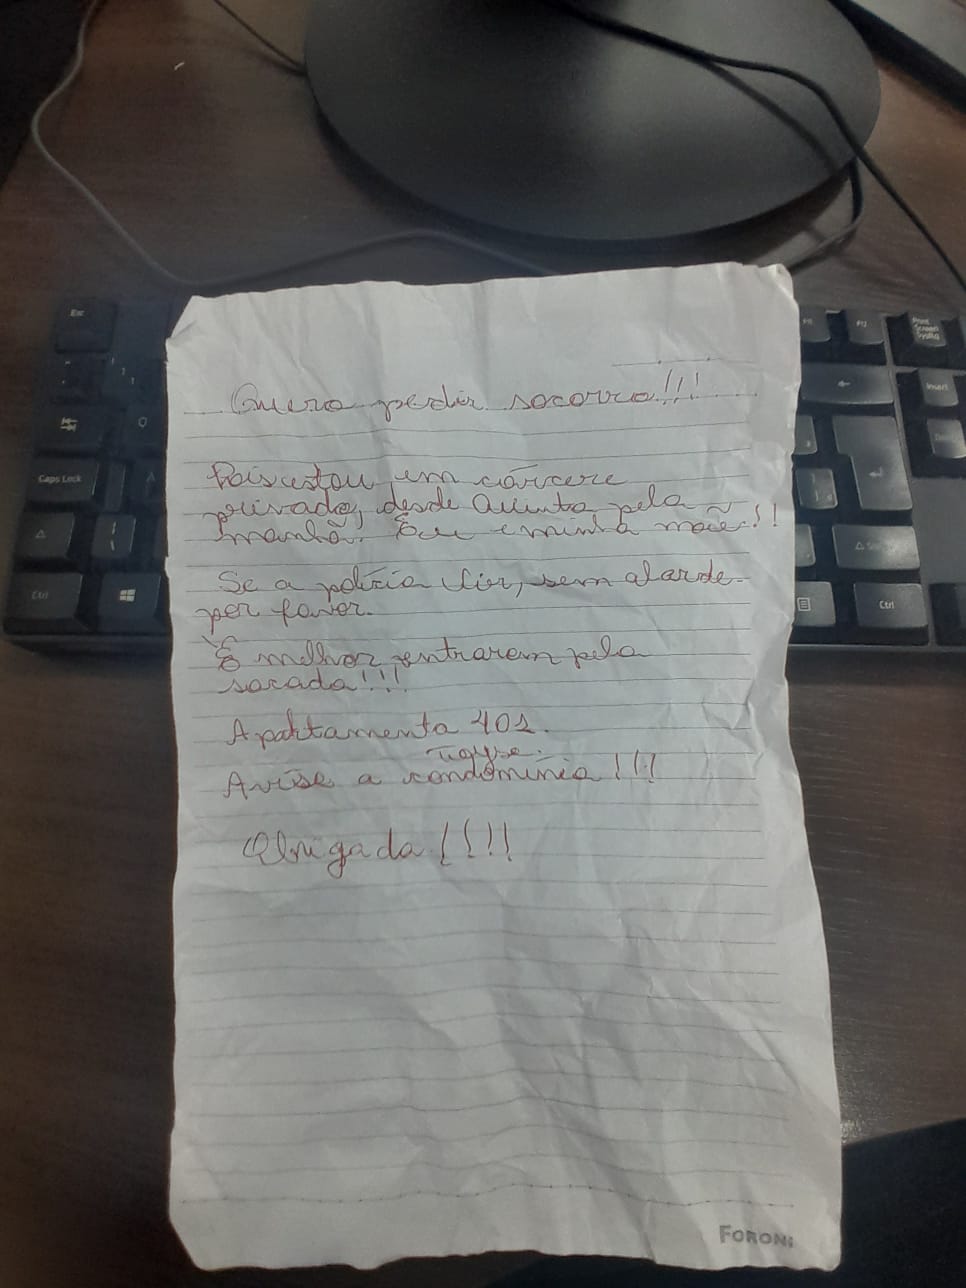 Quero pedir socorro!!!
Pois estou em cárcere
privado, desde Quinta pela
manhã. Eu e minha mãe!!
Se a polícia vir, sem alarde
por favor.
É melhor entrarem pela
sacada!!!
Apartamento 401.
Avise a condomínia!!!
Obrigada!!!!
FORONI
Esc
Caps Lock
Ctrl
Q
A
F11
F12
Print
Screen
SysRq
Insert
Ctrl